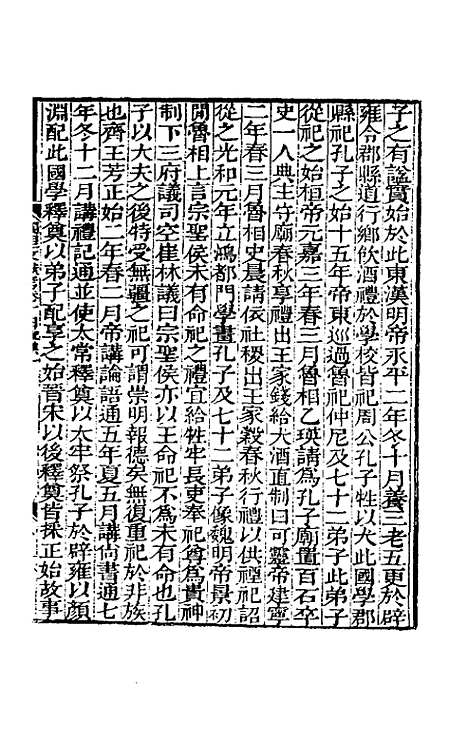 子之有諡實始於此東漢明帝永平二年冬十月養三老五更於辟
雍令郡縣道行鄉飲酒禮於學校皆祀周公孔子牲以犬此國學郡
縣祀孔子之始十五年帝東巡過魯祀仲尼及七十二弟子此弟子
從祀之始桓帝元嘉三年春三月魯相乙瑛請為孔子廟置百石卒
史一人典主守廟春秋享禮出王家錢給大酒直制曰可靈帝建寧
二年春三月魯相史晨請依社稷出王家穀春秋行禮以供禋祀詔
從之光和元年立鴻都門學畫孔子及七十二弟子像魏明帝景初
間魯相上言宗聖侯未有命祀之禮宜給牲牢長吏奉祀尊為貴神
制下三府議司空崔林議曰宗聖侯亦以王命祀不為未有命也孔
子以大夫之後特受無疆之祀可謂崇明報德矣無復重祀於非族
也齊王芳正始二年春二月帝講論語通五年夏五月講尚書通七
年冬十二月講禮記通並使太常釋奠以太牢祭孔子於辟雍以顏
淵配此國學釋奠以弟子配享之始晉宋以後釋奠皆採正始故事